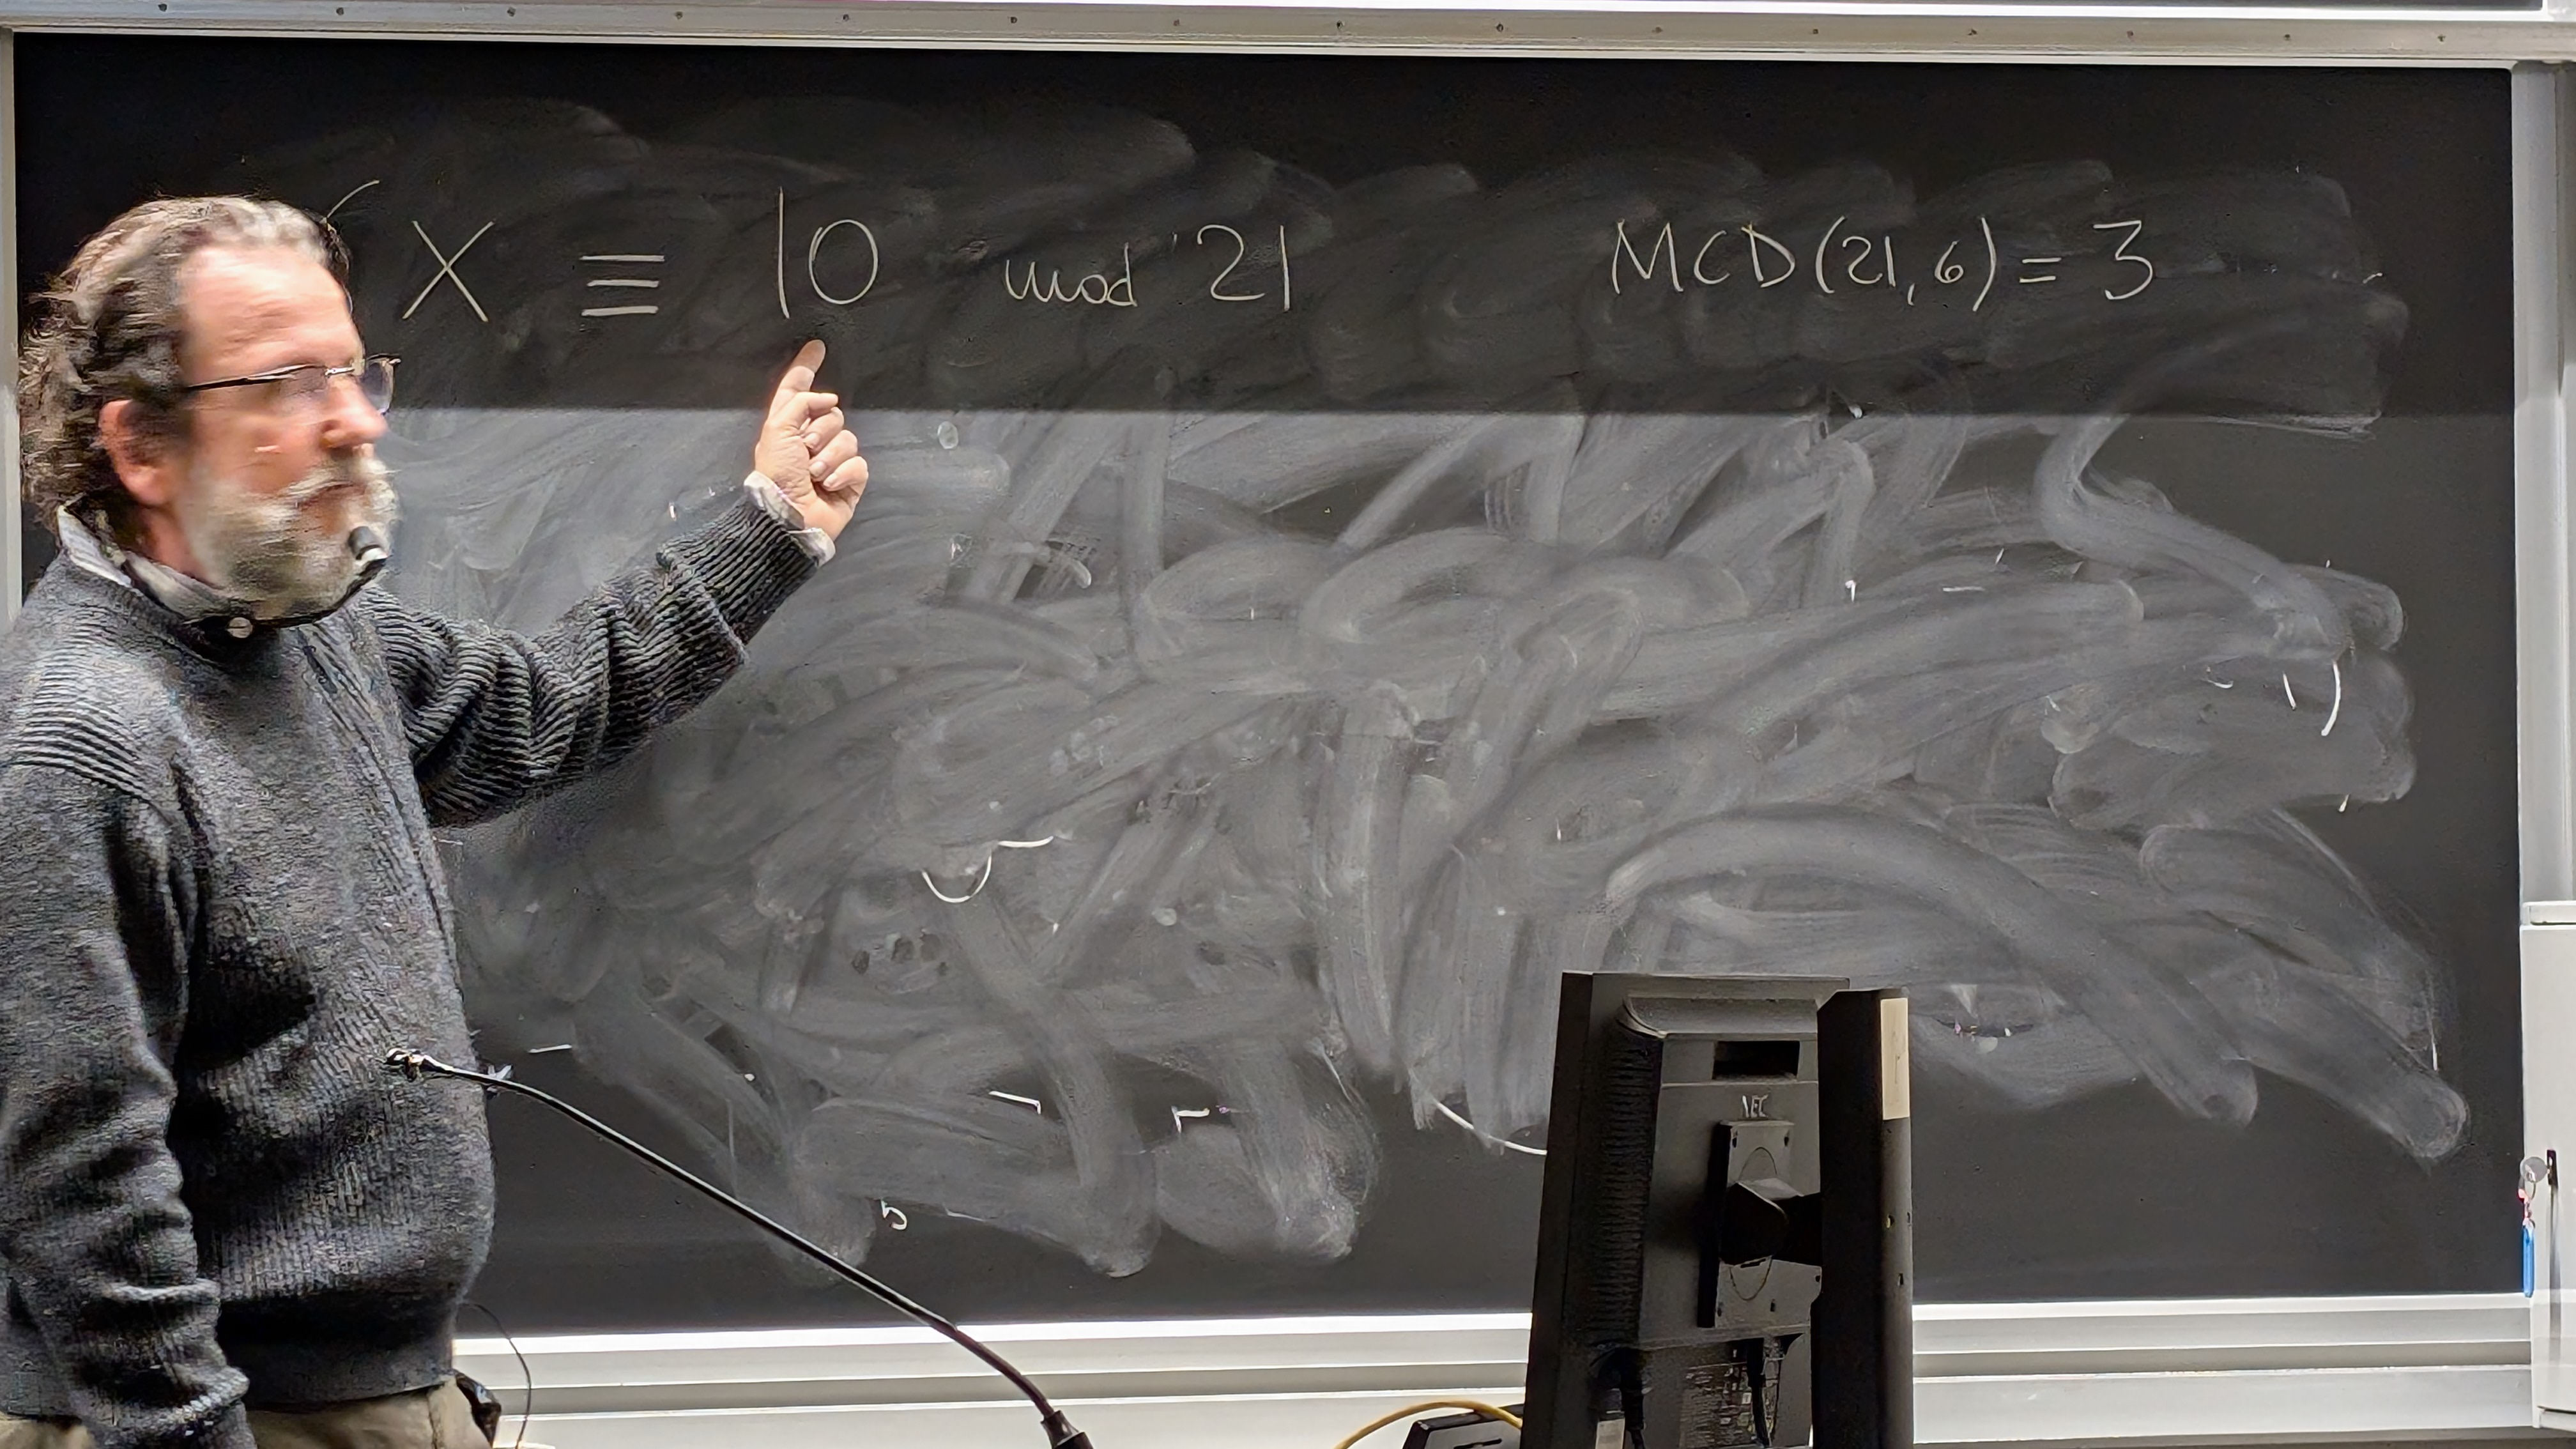 X ≡ 10 mod 21 MCD(21,6) = 3
5
NEC